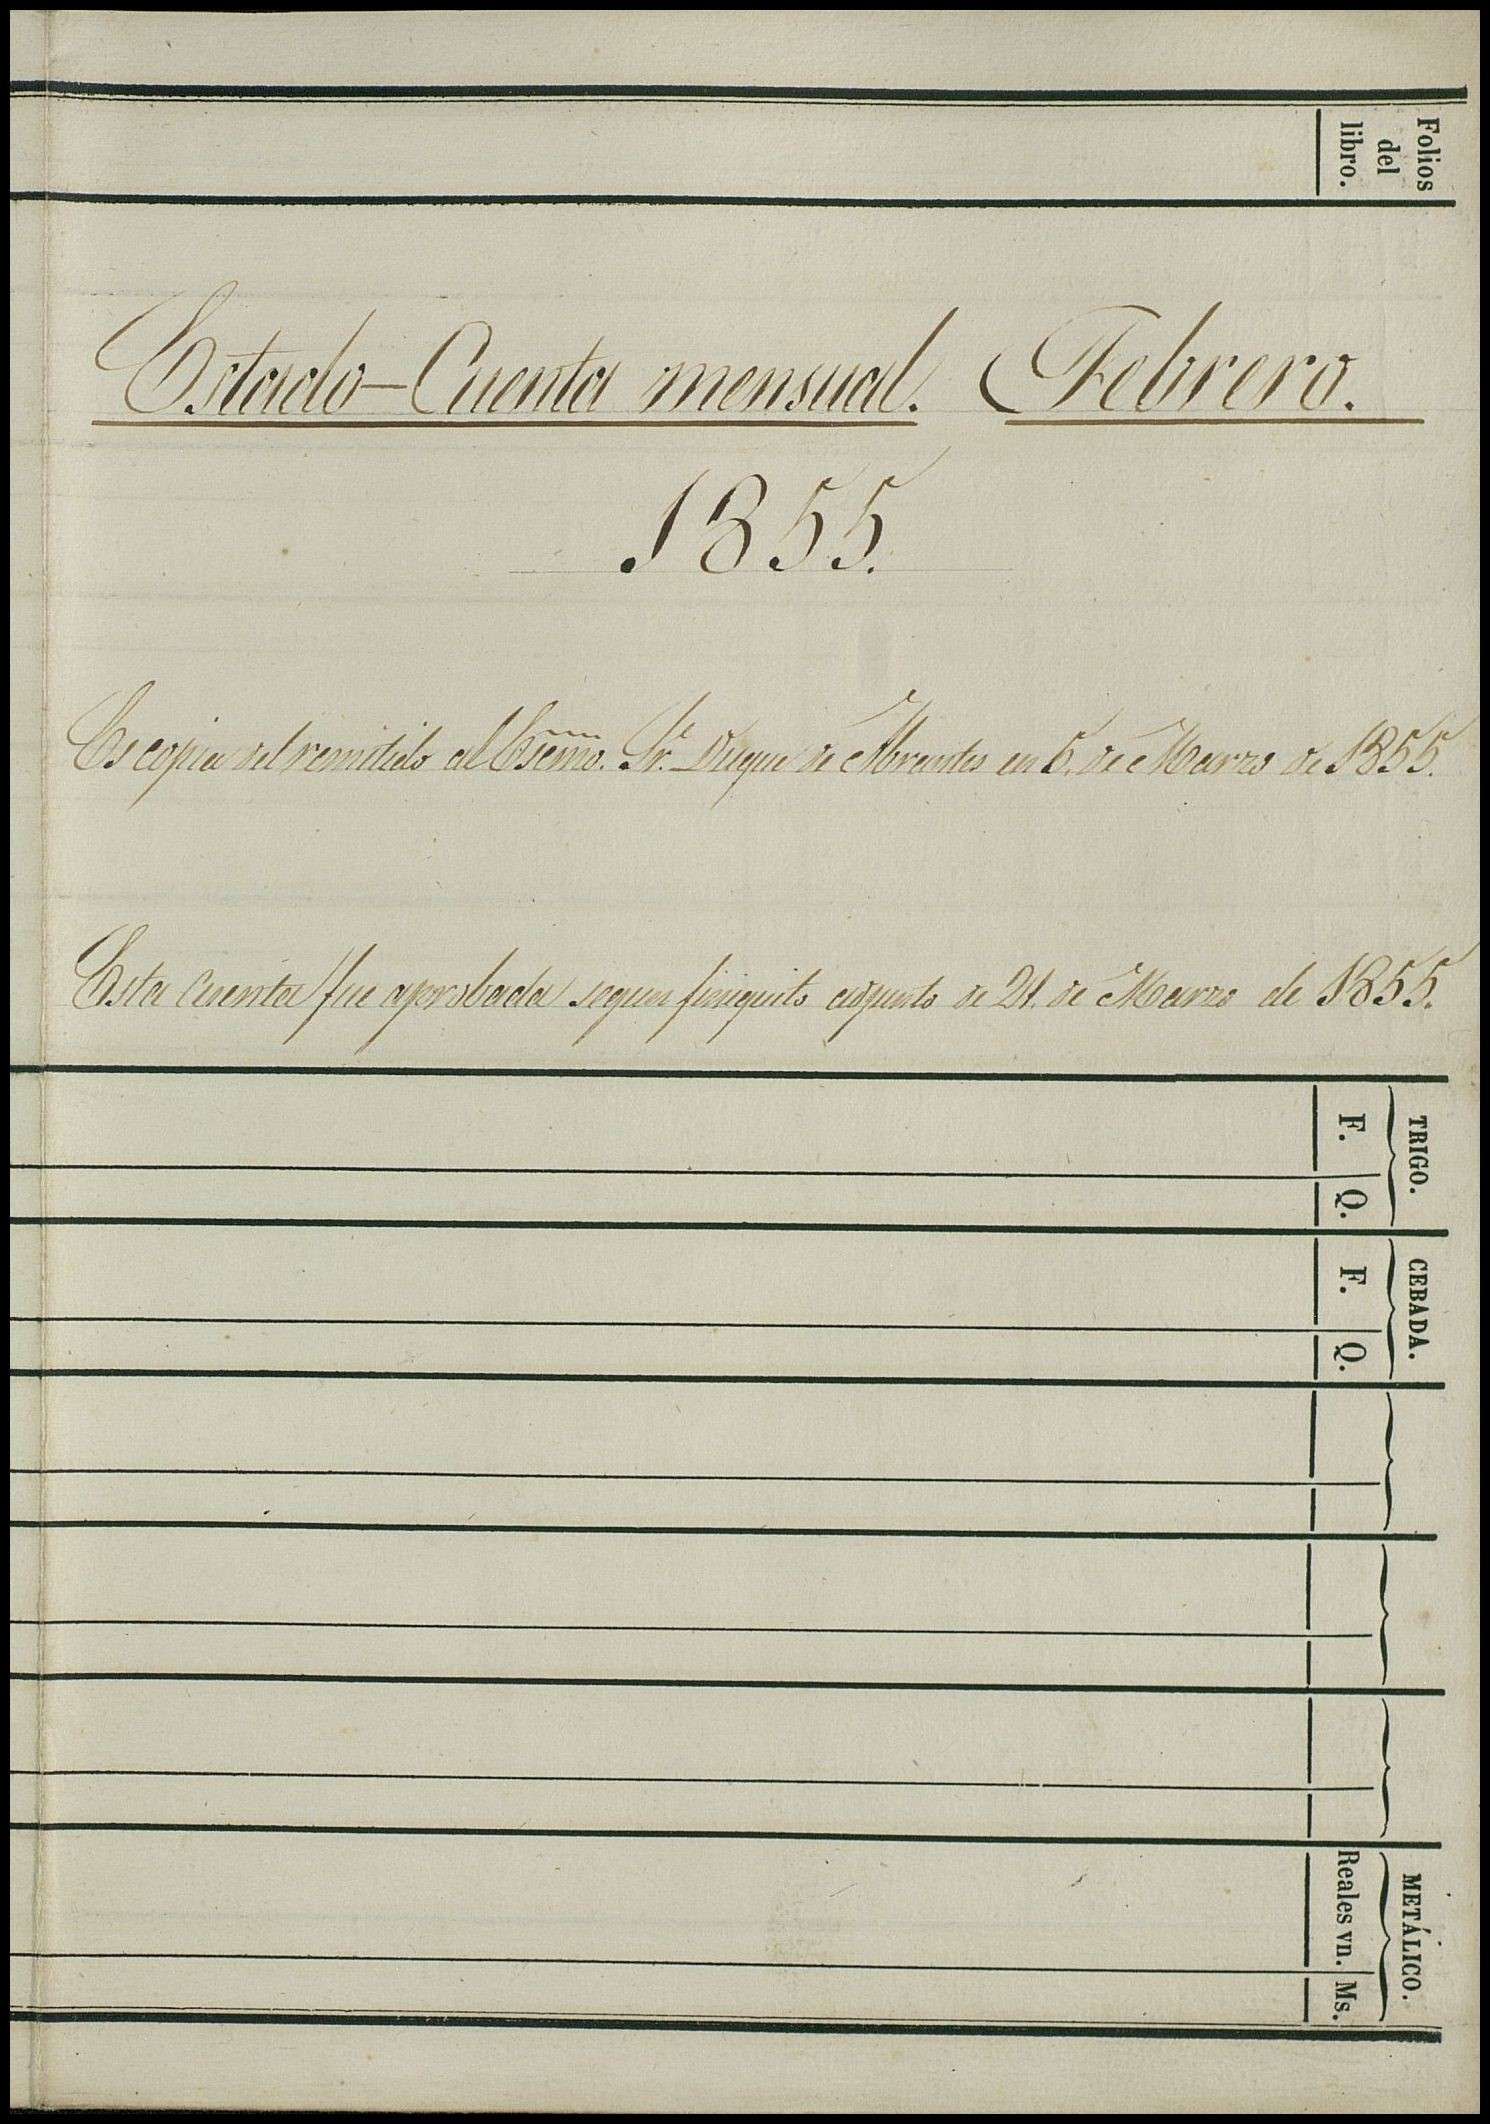 Folios
del
libro.
Estado-Cuenta mensual. Febrero.
1855.
Es copia del remitido al Esemo. Sr. Duque de Abrantes en 5. de Marzo de 1855.
Esta Cuenta fue aprobada segun finiquito adjunto de 21. de Marzo de 1855.
TRIGO.
F. Q.
CEBADA.
F. Q.
METÁLICO.
Reales vn. Ms.